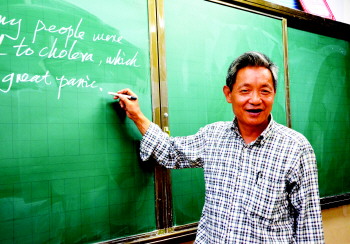 my people were
to cholera, which
great panic.